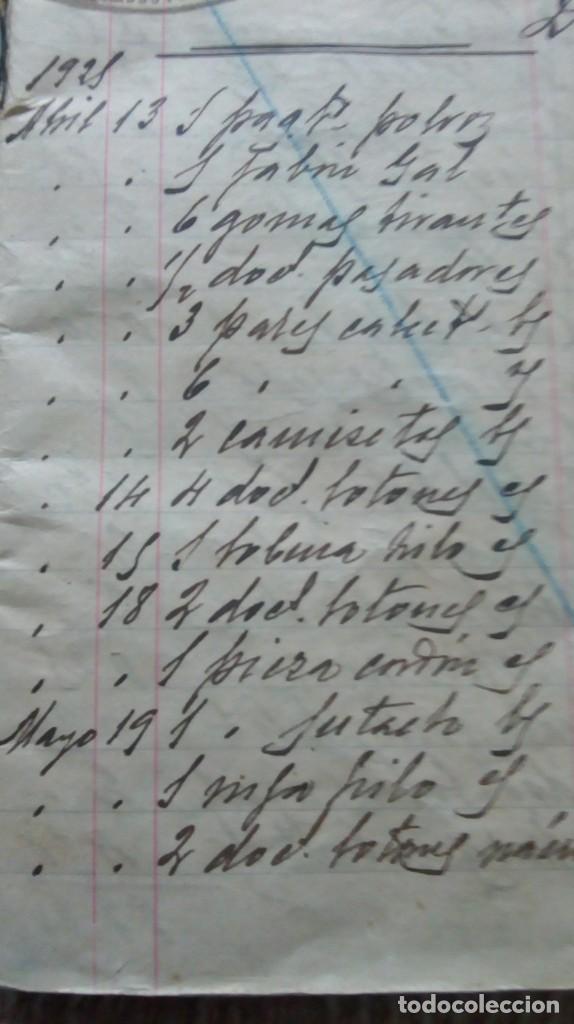 1925
Abril 13 1 paqte. polvos
. . 1 Jabón Gal
. . 6 gomas tirantes
. . 1/2 doc. pasadores
. . 3 pares calcet.
. . 6 . .
. . 2 camisetas
. 14 4 doc. botones
. 15 1 bobina hilo
. 18 2 doc. botones
. . 1 pieza cordón
Mayo 19 1 . sutache
. . 1 hilo
. . 2 doc. botones
todocoleccion